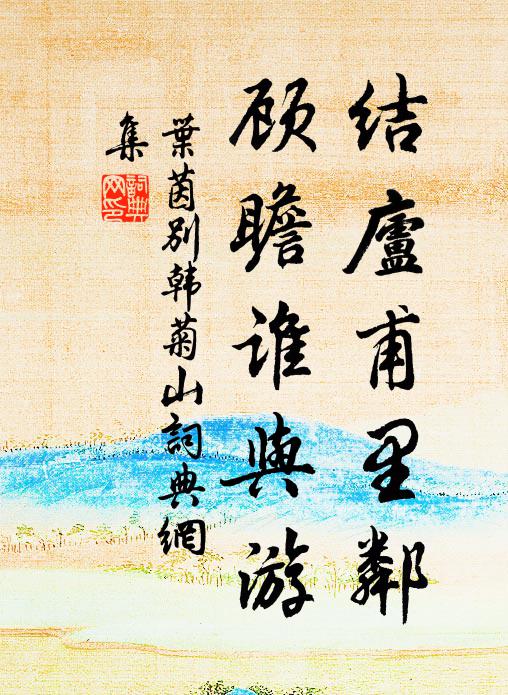 结廬甫里鄰
顾瞻谁與游
葉茵别韩菊山詞典網
集
詞典
网印